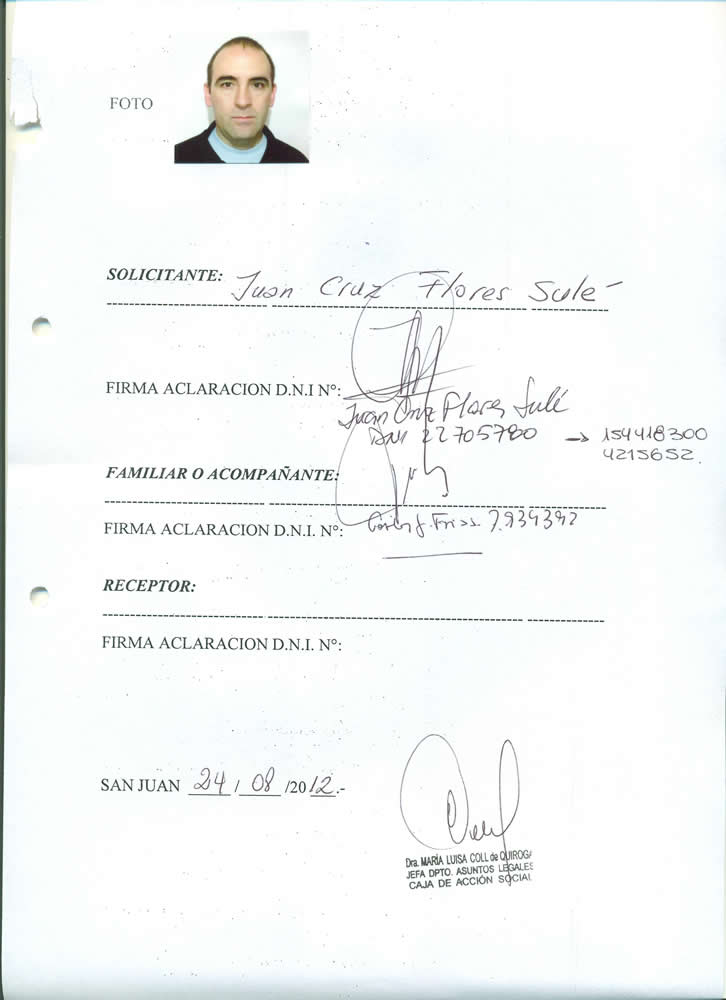 FOTO
SOLICITANTE: Juan Cruz Flores Sulé
FIRMA ACLARACION D.N.I Nº:
Juan Cruz Flores Sulé
DNI 22705780 → 154418300
4215652.
FAMILIAR O ACOMPAÑANTE:
FIRMA ACLARACION D.N.I. Nº: Carlos J. 7.934392
RECEPTOR:
FIRMA ACLARACION D.N.I. Nº:
SAN JUAN 24 / 08 /2012.-
Dra. MARÍA LUISA COLL de QUIROGA
JEFA DPTO. ASUNTOS LEGALES
CAJA DE ACCIÓN SOCIAL